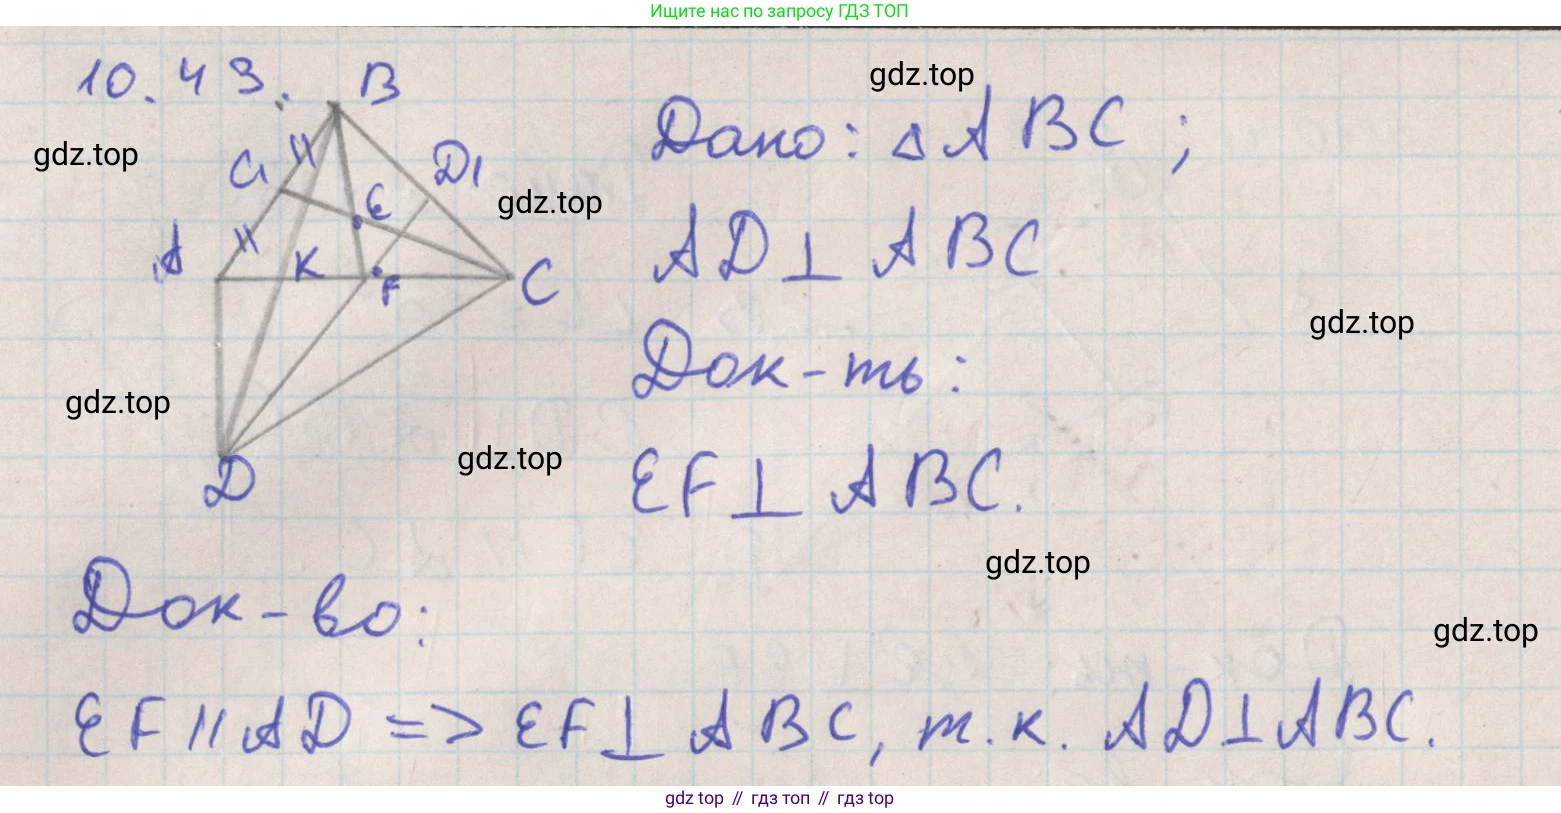 Ищите нас по запросу ГДЗ ТОП
10.43.
B
gdz.top
Дано: △ABC;
gdz.top
C₁
D₁
gdz.top
E
A
K
F
C
AD⊥ABC
gdz.top
Док-ть:
gdz.top
D
gdz.top
EF⊥ABC.
gdz.top
Док-во:
gdz.top
EF||AD => EF⊥ABC, т.к. AD⊥ABC.
gdz top // гдз топ // гдз top